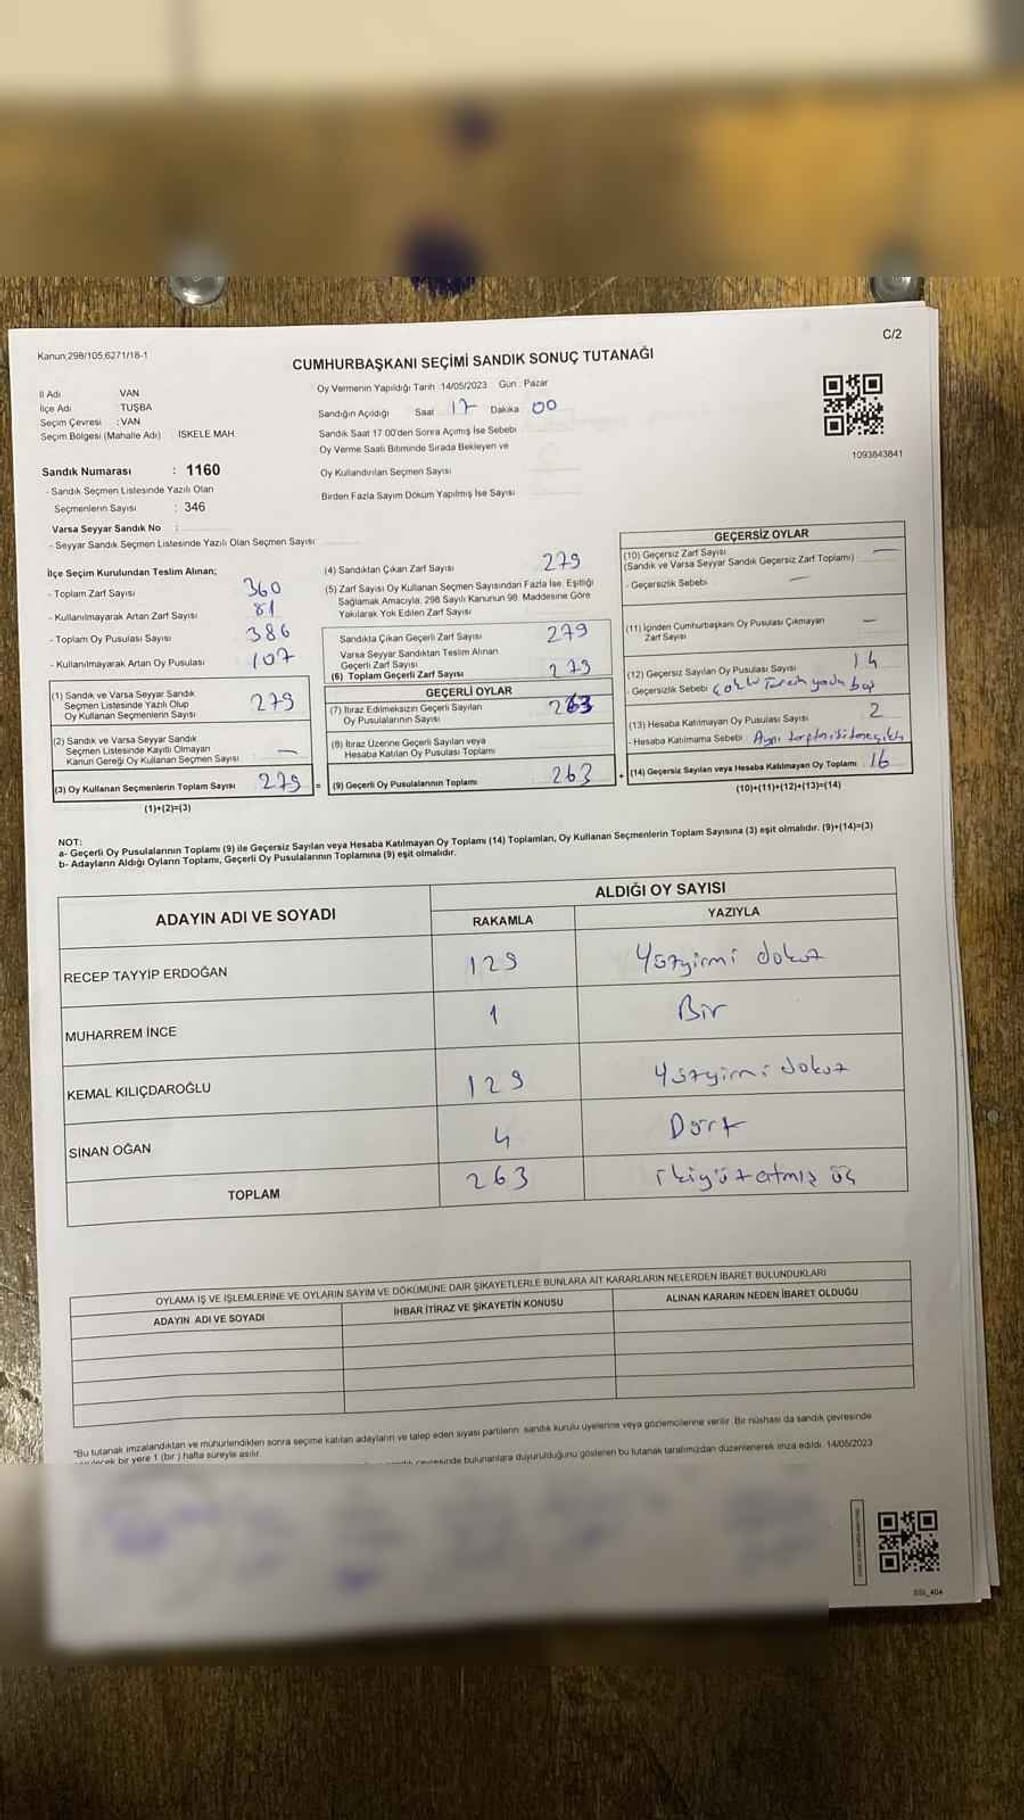 Kanun;298/105,6271/18-1
C/2
CUMHURBAŞKANI SEÇİMİ SANDIK SONUÇ TUTANAĞI
İl Adı VAN
İlçe Adı TUŞBA
Seçim Çevresi : VAN
Seçim Bölgesi (Mahalle Adı) İSKELE MAH
Sandık Numarası : 1160
- Sandık Seçmen Listesinde Yazılı Olan
Seçmenlerin Sayısı : 346
Varsa Seyyar Sandık No :
- Seyyar Sandık Seçmen Listesinde Yazılı Olan Seçmen Sayısı
Oy Vermenin Yapıldığı Tarih 14/05/2023 Gün : Pazar
Sandığın Açıldığı Saat 17 Dakika 00
Sandık Saat 17.00'den Sonra Açımış İse Sebebi
Oy Verme Saati Bitiminde Sırada Bekleyen ve
Oy Kullandırılan Seçmen Sayısı
Birden Fazla Sayım Döküm Yapılmış İse Sayısı
1093843841
İlçe Seçim Kurulundan Teslim Alınan;
- Toplam Zarf Sayısı 360
- Kullanılmayarak Artan Zarf Sayısı 81
- Toplam Oy Pusulası Sayısı 386
- Kullanılmayarak Artan Oy Pusulası 107
(1) Sandık ve Varsa Seyyar Sandık
Seçmen Listesinde Yazılı Olup
Oy Kullanan Seçmenlerin Sayısı 279
(2) Sandık ve Varsa Seyyar Sandık
Seçmen Listesinde Kayıtlı Olmayan
Kanun Gereği Oy Kullanan Seçmen Sayısı —
(3) Oy Kullanan Seçmenlerin Toplam Sayısı 279 =
(1)+(2)=(3)
(4) Sandıktan Çıkan Zarf Sayısı 279
(5) Zarf Sayısı Oy Kullanan Seçmen Sayısından Fazla İse, Eşitliği
Sağlamak Amacıyla, 298 Sayılı Kanunun 98. Maddesine Göre
Yakılarak Yok Edilen Zarf Sayısı
Sandıkta Çıkan Geçerli Zarf Sayısı 279
Varsa Seyyar Sandıktan Teslim Alınan
Geçerli Zarf Sayısı
(6) Toplam Geçerli Zarf Sayısı 279
GEÇERLİ OYLAR
(7) İtiraz Edilmeksizin Geçerli Sayılan
Oy Pusulalarının Sayısı 263
(8) İtiraz Üzerine Geçerli Sayılan veya
Hesaba Katılan Oy Pusulası Toplamı
(9) Geçerli Oy Pusulalarının Toplamı 263 +
GEÇERSİZ OYLAR
(10) Geçersiz Zarf Sayısı —
(Sandık ve Varsa Seyyar Sandık Geçersiz Zarf Toplamı)
- Geçersizlik Sebebi —
(11) İçinden Cumhurbaşkanı Oy Pusulası Çıkmayan
Zarf Sayısı —
(12) Geçersiz Sayılan Oy Pusulası Sayısı 14
- Geçersizlik Sebebi
(13) Hesaba Katılmayan Oy Pusulası Sayısı 2
- Hesaba Katılmama Sebebi Aynı
(14) Geçersiz Sayılan veya Hesaba Katılmayan Oy Toplamı 16
(10)+(11)+(12)+(13)=(14)
NOT:
a- Geçerli Oy Pusulalarının Toplamı (9) ile Geçersiz Sayılan veya Hesaba Katılmayan Oy Toplamı (14) Toplamları, Oy Kullanan Seçmenlerin Toplam Sayısına (3) eşit olmalıdır. (9)+(14)=(3)
b- Adayların Aldığı Oyların Toplamı, Geçerli Oy Pusulalarının Toplamına (9) eşit olmalıdır.
ADAYIN ADI VE SOYADI
ALDIĞI OY SAYISI
RAKAMLA YAZIYLA
RECEP TAYYİP ERDOĞAN 129 Yüzyirmi dokuz
MUHARREM İNCE 1 Bir
KEMAL KILIÇDAROĞLU 129 Yüzyirmi dokuz
SİNAN OĞAN 4 Dört
TOPLAM 263 ikiyüz atmış üç
OYLAMA İŞ VE İŞLEMLERİNE VE OYLARIN SAYIM VE DÖKÜMÜNE DAİR ŞİKAYETLERLE BUNLARA AİT KARARLARIN NELERDEN İBARET BULUNDUKLARI
ADAYIN ADI VE SOYADI İHBAR İTİRAZ VE ŞİKAYETİN KONUSU ALINAN KARARIN NEDEN İBARET OLDUĞU
"Bu tutanak imzalandıktan ve mühürlendikten sonra seçime katılan adayların ve talep eden siyasi partilerin sandık kurulu üyelerine veya gözlemcilerine verilir. Bir nüshası da sandık çevresinde
bir yere 1 (bir ) hafta süreyle asılır.
çevresinde bulunanlara duyurulduğunu gösteren bu tutanak tarafımızdan düzenlenerek imza edildi. 14/05/2023